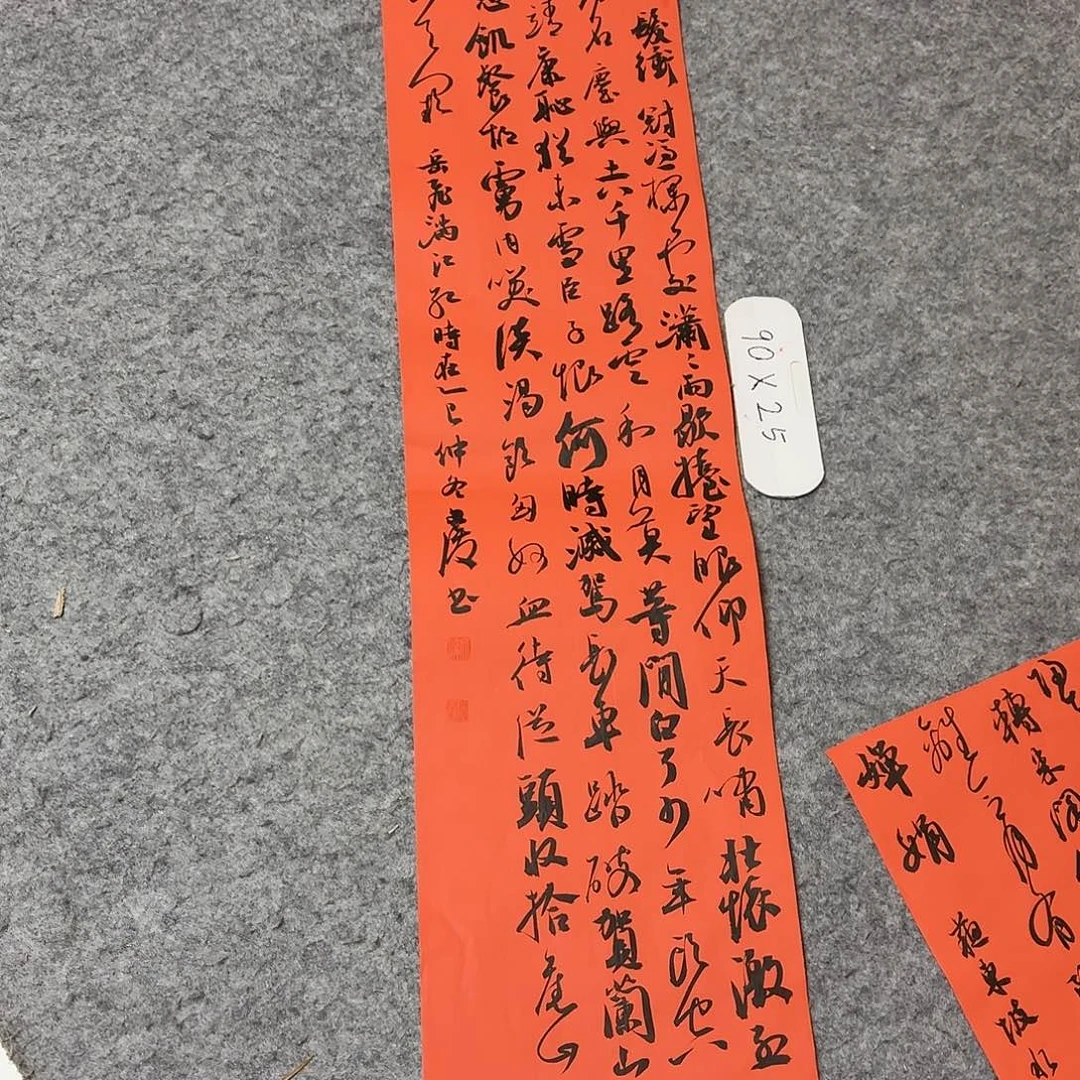 髮衝冠憑欄處瀟〻雨歇擡望眼仰天長嘯壯懷激烈
名塵與土八千里路雲和月莫等閒白了少年頭空
靖康恥猶未雪臣子恨何時滅駕長車踏破賀蘭山
飢餐胡虜肉笑談渴飲匈奴血待從頭收拾舊山
天闕 岳飛滿江紅時在乙巳仲冬慶书
90X25
轉朱閣
月有
嬋娟 蘇東坡水